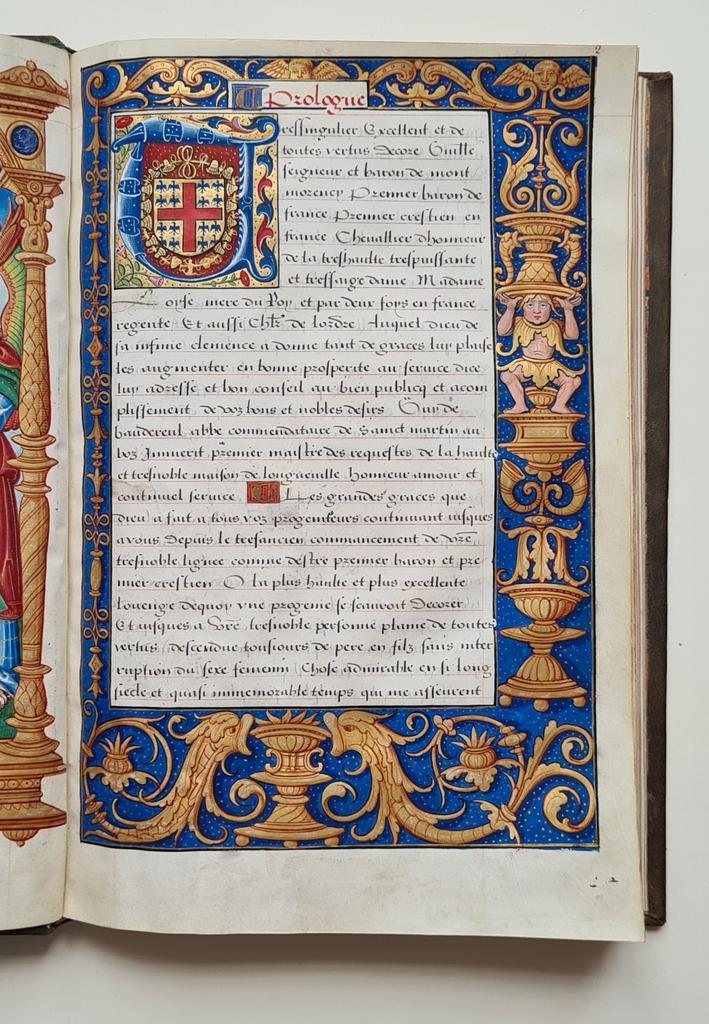 2
Prologue
Tressingulier Excellent et de
toutes vertus decore Guille
seigneur et baron de mont
morency Premier baron de
france Premier crestien en
france Chevallier dhonneur
de la treshaulte trespuissante
et tressaige dame Madame
Loyse mere du Roy et par deux foys en france
regente Et aussi Chlr de lordre Auquel dieu de
sa infinie clemence a donne tant de graces luy plaise
les augmenter en bonne prosperite au service dice
luy adresse et bon conseil au bien publicq et acom
plissement de voz bons et nobles desirs Guy de
baudereul abbe commendataire de Sainct martin au
boz premier maistre des requestes de la haulte
et tresnoble maison de longueville honneur amour et
continuel service Les grandes graces que
dieu a fait a tous voz progeniteurs continuant iusques
a vous depuis le tresancien commancement de vre
tresnoble lignee comme destre premier baron et pre
mier crestien O la plus haulte et plus excellente
louenge dequoy vne progenie se scauroit decorer
Et iusques a vre tresnoble personne plaine de toutes
vertus descendue tousiours de pere en filz sans inter
ruption du sexe femenin Chose admirable en si long
siecle et quasi immemorable temps qui me asseurent